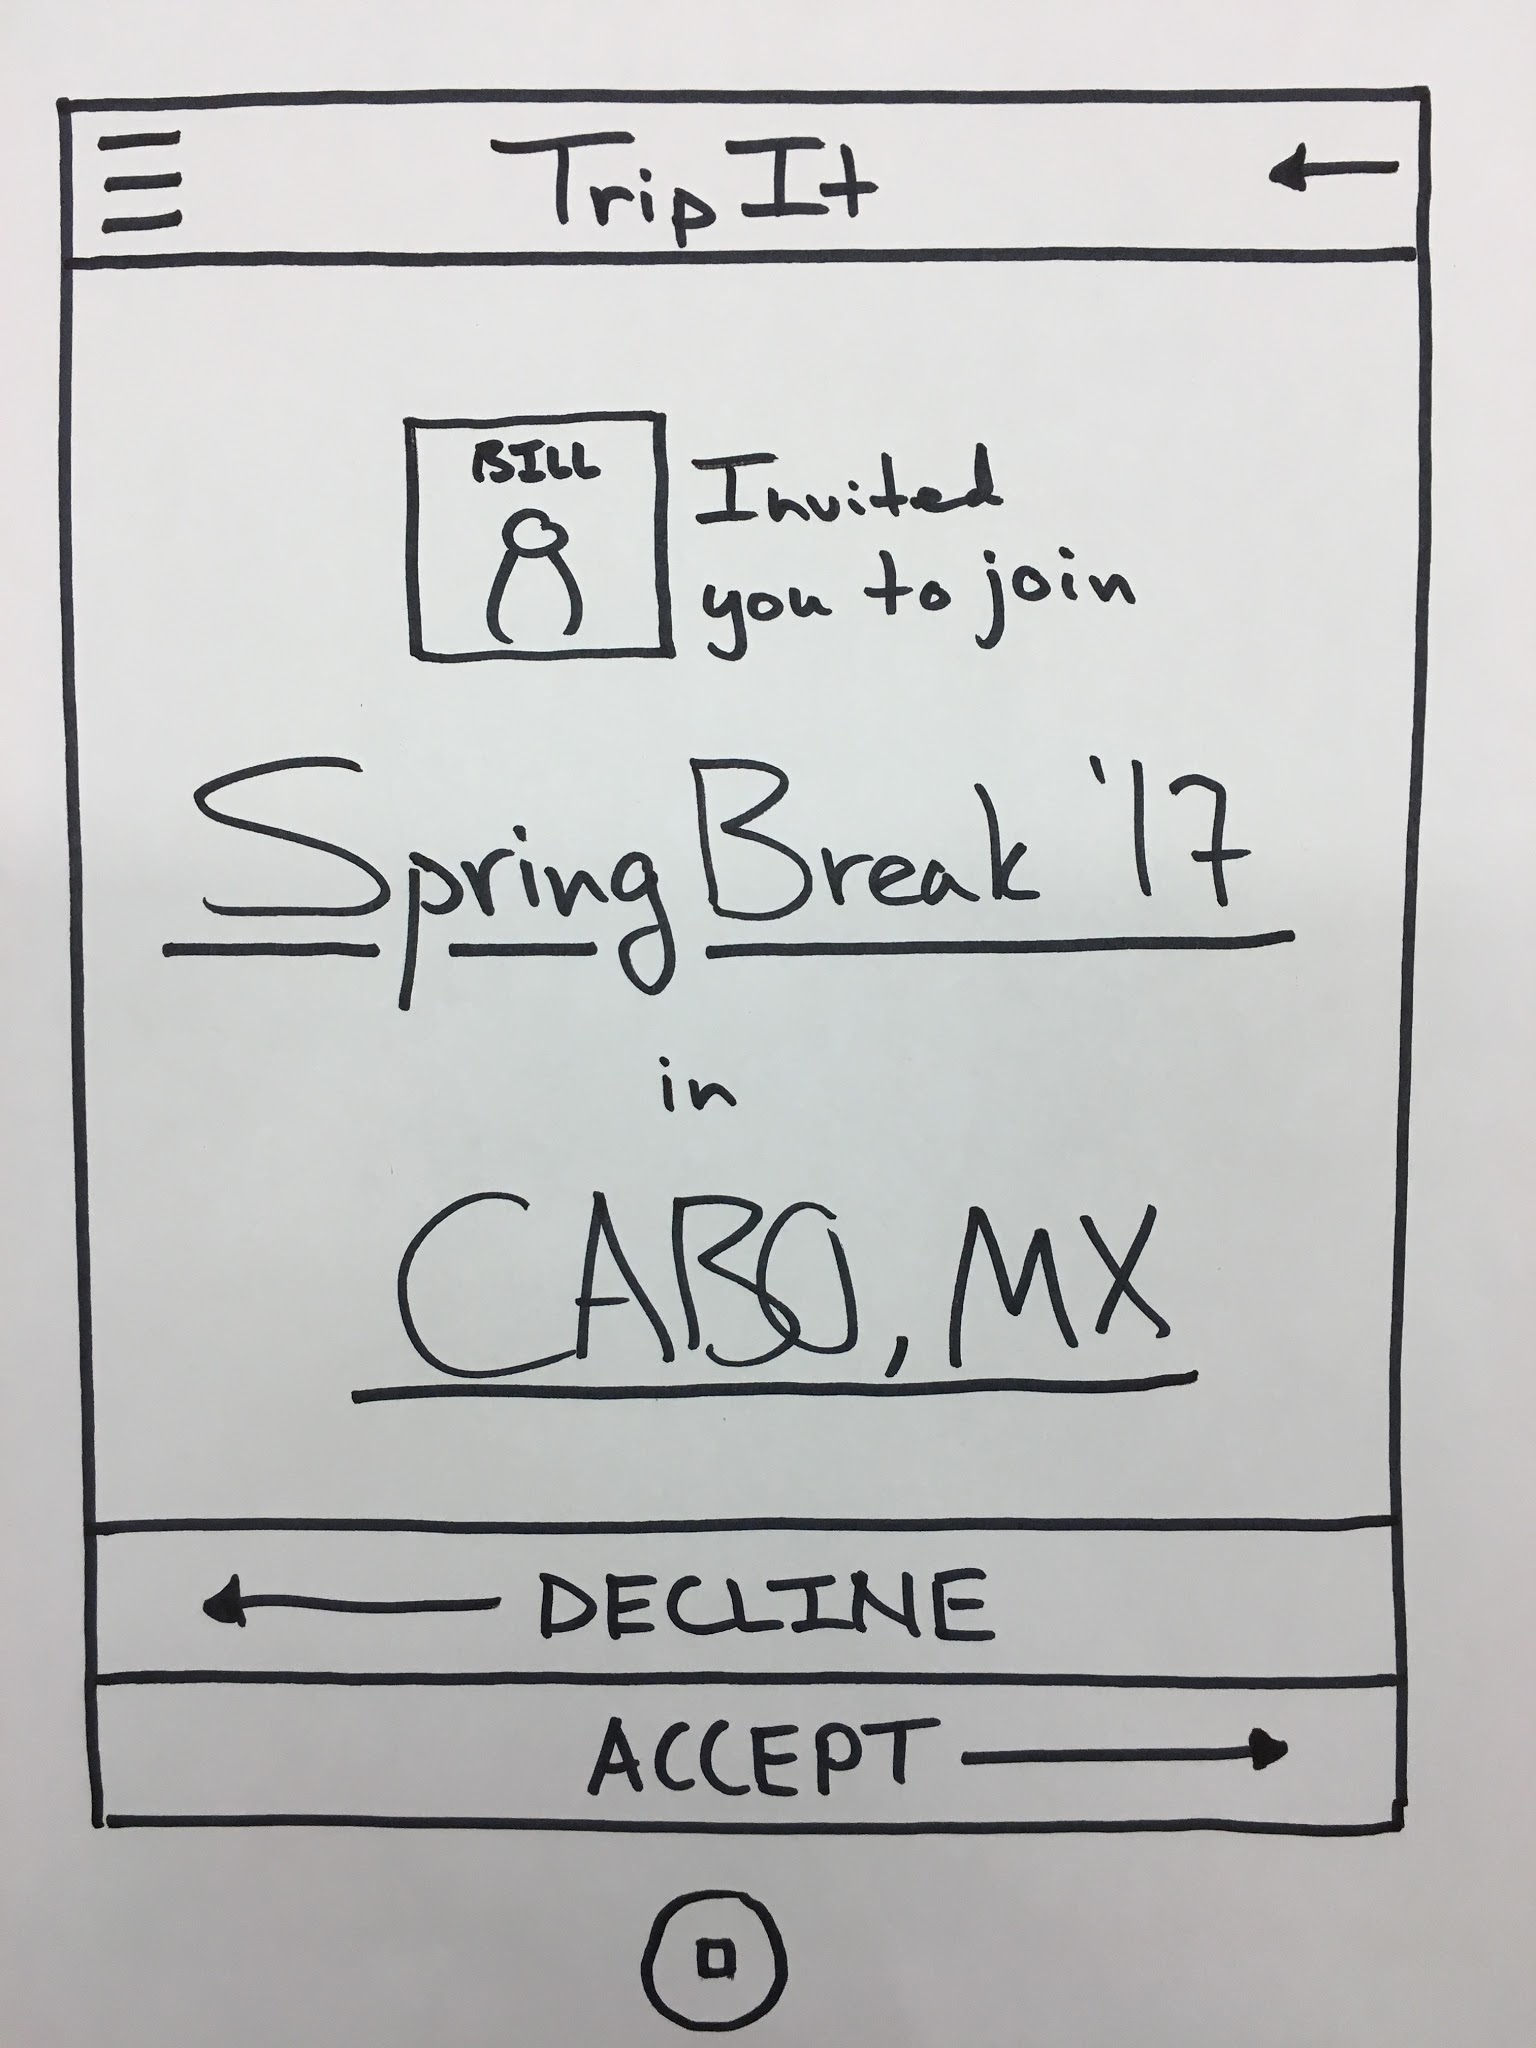 Trip It
BILL
Invited
you to join
Spring Break '17
in
CABO, MX
DECLINE
ACCEPT